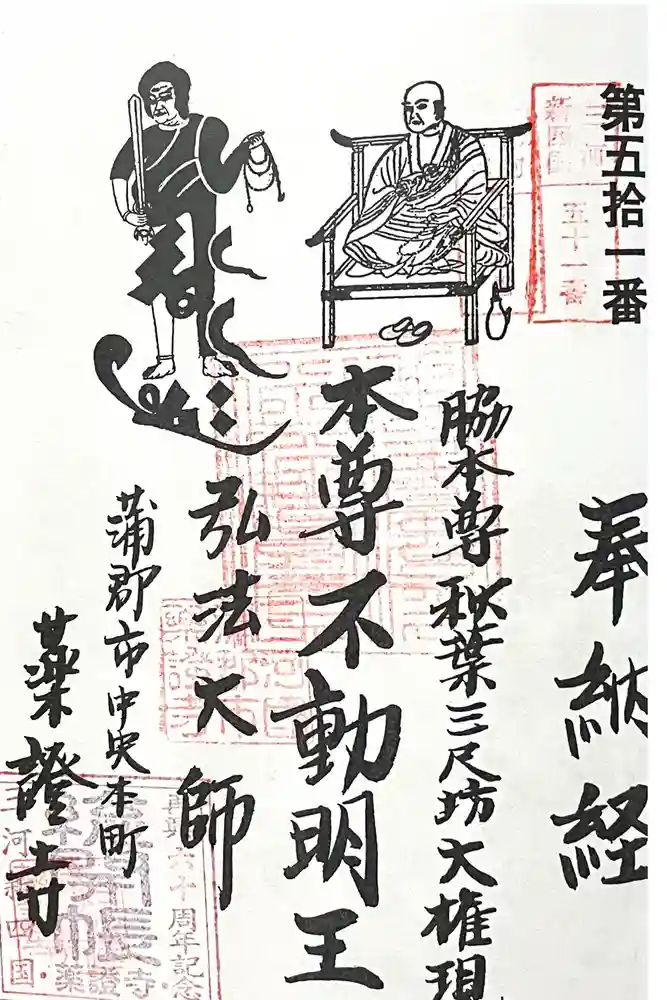 第五拾一番
奉納経
脇本尊 秋葉三尺坊大権現
本尊不動明王
弘法大師
蒲郡市中央本町
薬證寺
三河
新四国
五十一番
六十周年記念
三河新四国・薬證寺・